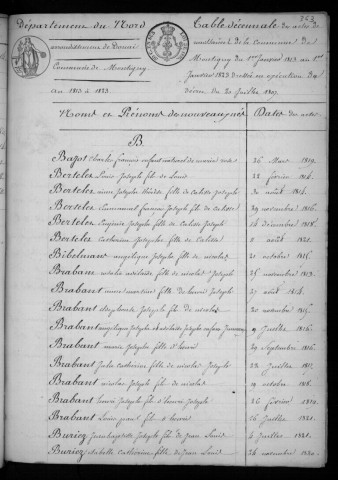 353
Département du Nord
arrondissement de Douai
Commune de Montigny
an 1813 à 1823.
Table décennale des actes de
naissances de la Commune de
Montigny du 1er Janvier 1813 au 1er
Janvier 1823 dressée en exécution du
décret du 20 Juillet 1807.
Noms et Prénoms des nouveaux nés Dates des actes
B.
Bagot Charles francois enfant naturel de 26 Mars 1819.
Bertelez Louis Joseph fils de Louis 22 février 1814.
Bertelez Joseph fille de Calixte Joseph août 1814.
Bertelez Joseph fils de Calixte 29 novembre 1816.
Bertelez Eugénie Josephe fille de Calixte Joseph 14 décembre 1818.
Bertelez Catherine Josephe fille de Calixte 11 août 1821.
angélique Josephe fille de nicolas 21 octobre 1815.
Brabant adélaïde fille de nicolas Joseph 25 novembre 1813.
Brabant Joseph fils de henri Joseph 27 août 1814.
Brabant Joseph fils de nicolas 20 novembre 1815.
Brabant angélique Joseph 9 Juillet 1816.
Brabant marie Joseph fille d'henri 29 Septembre 1816.
Brabant Julie catherine fille de nicolas Joseph 22 Juillet
Brabant nicolas Joseph fils de nicolas 19 octobre 1818.
Brabant henri Joseph fils d'henri Joseph 26 février
Brabant Louis fils d'henri 16 Juillet 1821.
Buriez Jean baptiste Joseph fils de Jean Louis 6 Juillet 1821.
Buriez Isabelle Catherine fille de Jean Louis 24 novembre 1820.